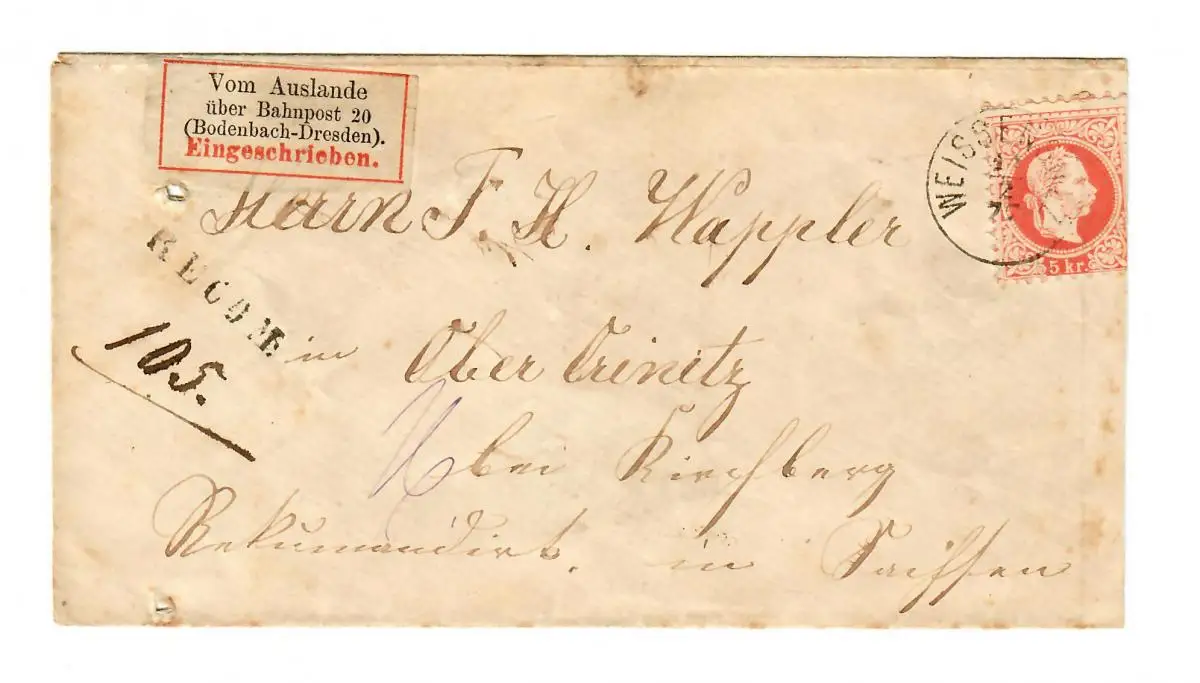 Vom Auslande
über Bahnpost 20
(Bodenbach-Dresden).
Eingeschrieben.
WEISSEN
5 kr.
Herrn F. H. Wappler
RECOM
105.
in Ober Crinitz
bei Kirchberg
Rekumandirt. in Saißen